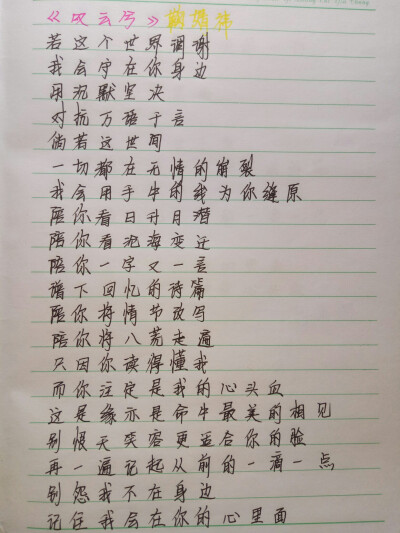 《叹云兮》鞠婧祎
若这个世界调谢
我会守在你身边
用沉默坚决
对抗万语千言
倘若这世间
一切都在无情的崩裂
我会用手中的线为你缝原
陪你看日升月潜
陪你看沧海变迁
陪你一字又一言
谱下回忆的诗篇
陪你将情节改写
陪你将八荒走遍
只因你读得懂我
而你注定是我的心头血
这是缘亦是命中最美的相见
别恨天笑容更适合你的脸
再一遍记起从前的一滴一点
别怨我不在身边
记住我会在你的心里面